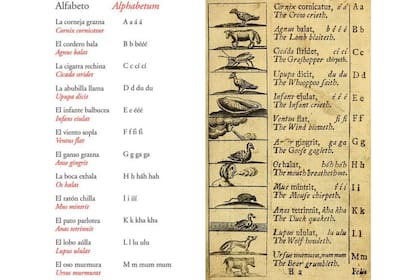 Alfabeto Alphabetum
La corneja grazna A a á á
Cornix cornicatur
El cordero bala B b bééé
Agnus balat
La cigarra rechina C c cí cí
Cicada strides
La abubilla llama D d du du
Upupa dicit
El infante balbucea E e ééé
Infans eiulat
El viento sopla F f fi fi
Ventus flat
El ganso grazna G g ga ga
Anse gingrit
La boca exhala H h háh hah
Os halat
El ratón chilla I i ííí
Mus mintrit
El pato parlotea K k kha kha
Anas tetrinnit
El lobo aúlla L l lu ulu
Lupus ululat
El oso murmura M m mum mum
Ursus murmurat
Cornix cornicatur, á á A a
The Crow crieth.
Agnus balat, b é é é B b
The Lamb blaiteth.
Cicàda stridet, cì cì C c
The Grashopper chirpeth.
Upupa dicit, du du D d
The Whooppoo saith.
Infans ejulat, é é é E e
The Infant crieth.
Ventus flat, fi fi F f
The Wind bloweth.
gingrit, ga ga G g
The Goose gagleth.
Os halat, hà'h hà'h H h
The mouth breatheth out.
Mus mintrit, í í í I i
The Mouse chirpeth.
Anas tetrinnit, kha kha K k
The Duck quaketh.
Lupus ululat, lu ulu L l
The Wolf howleth.
Ursus murmurat, mum mum M m
The Bear grumbleth.
B 2